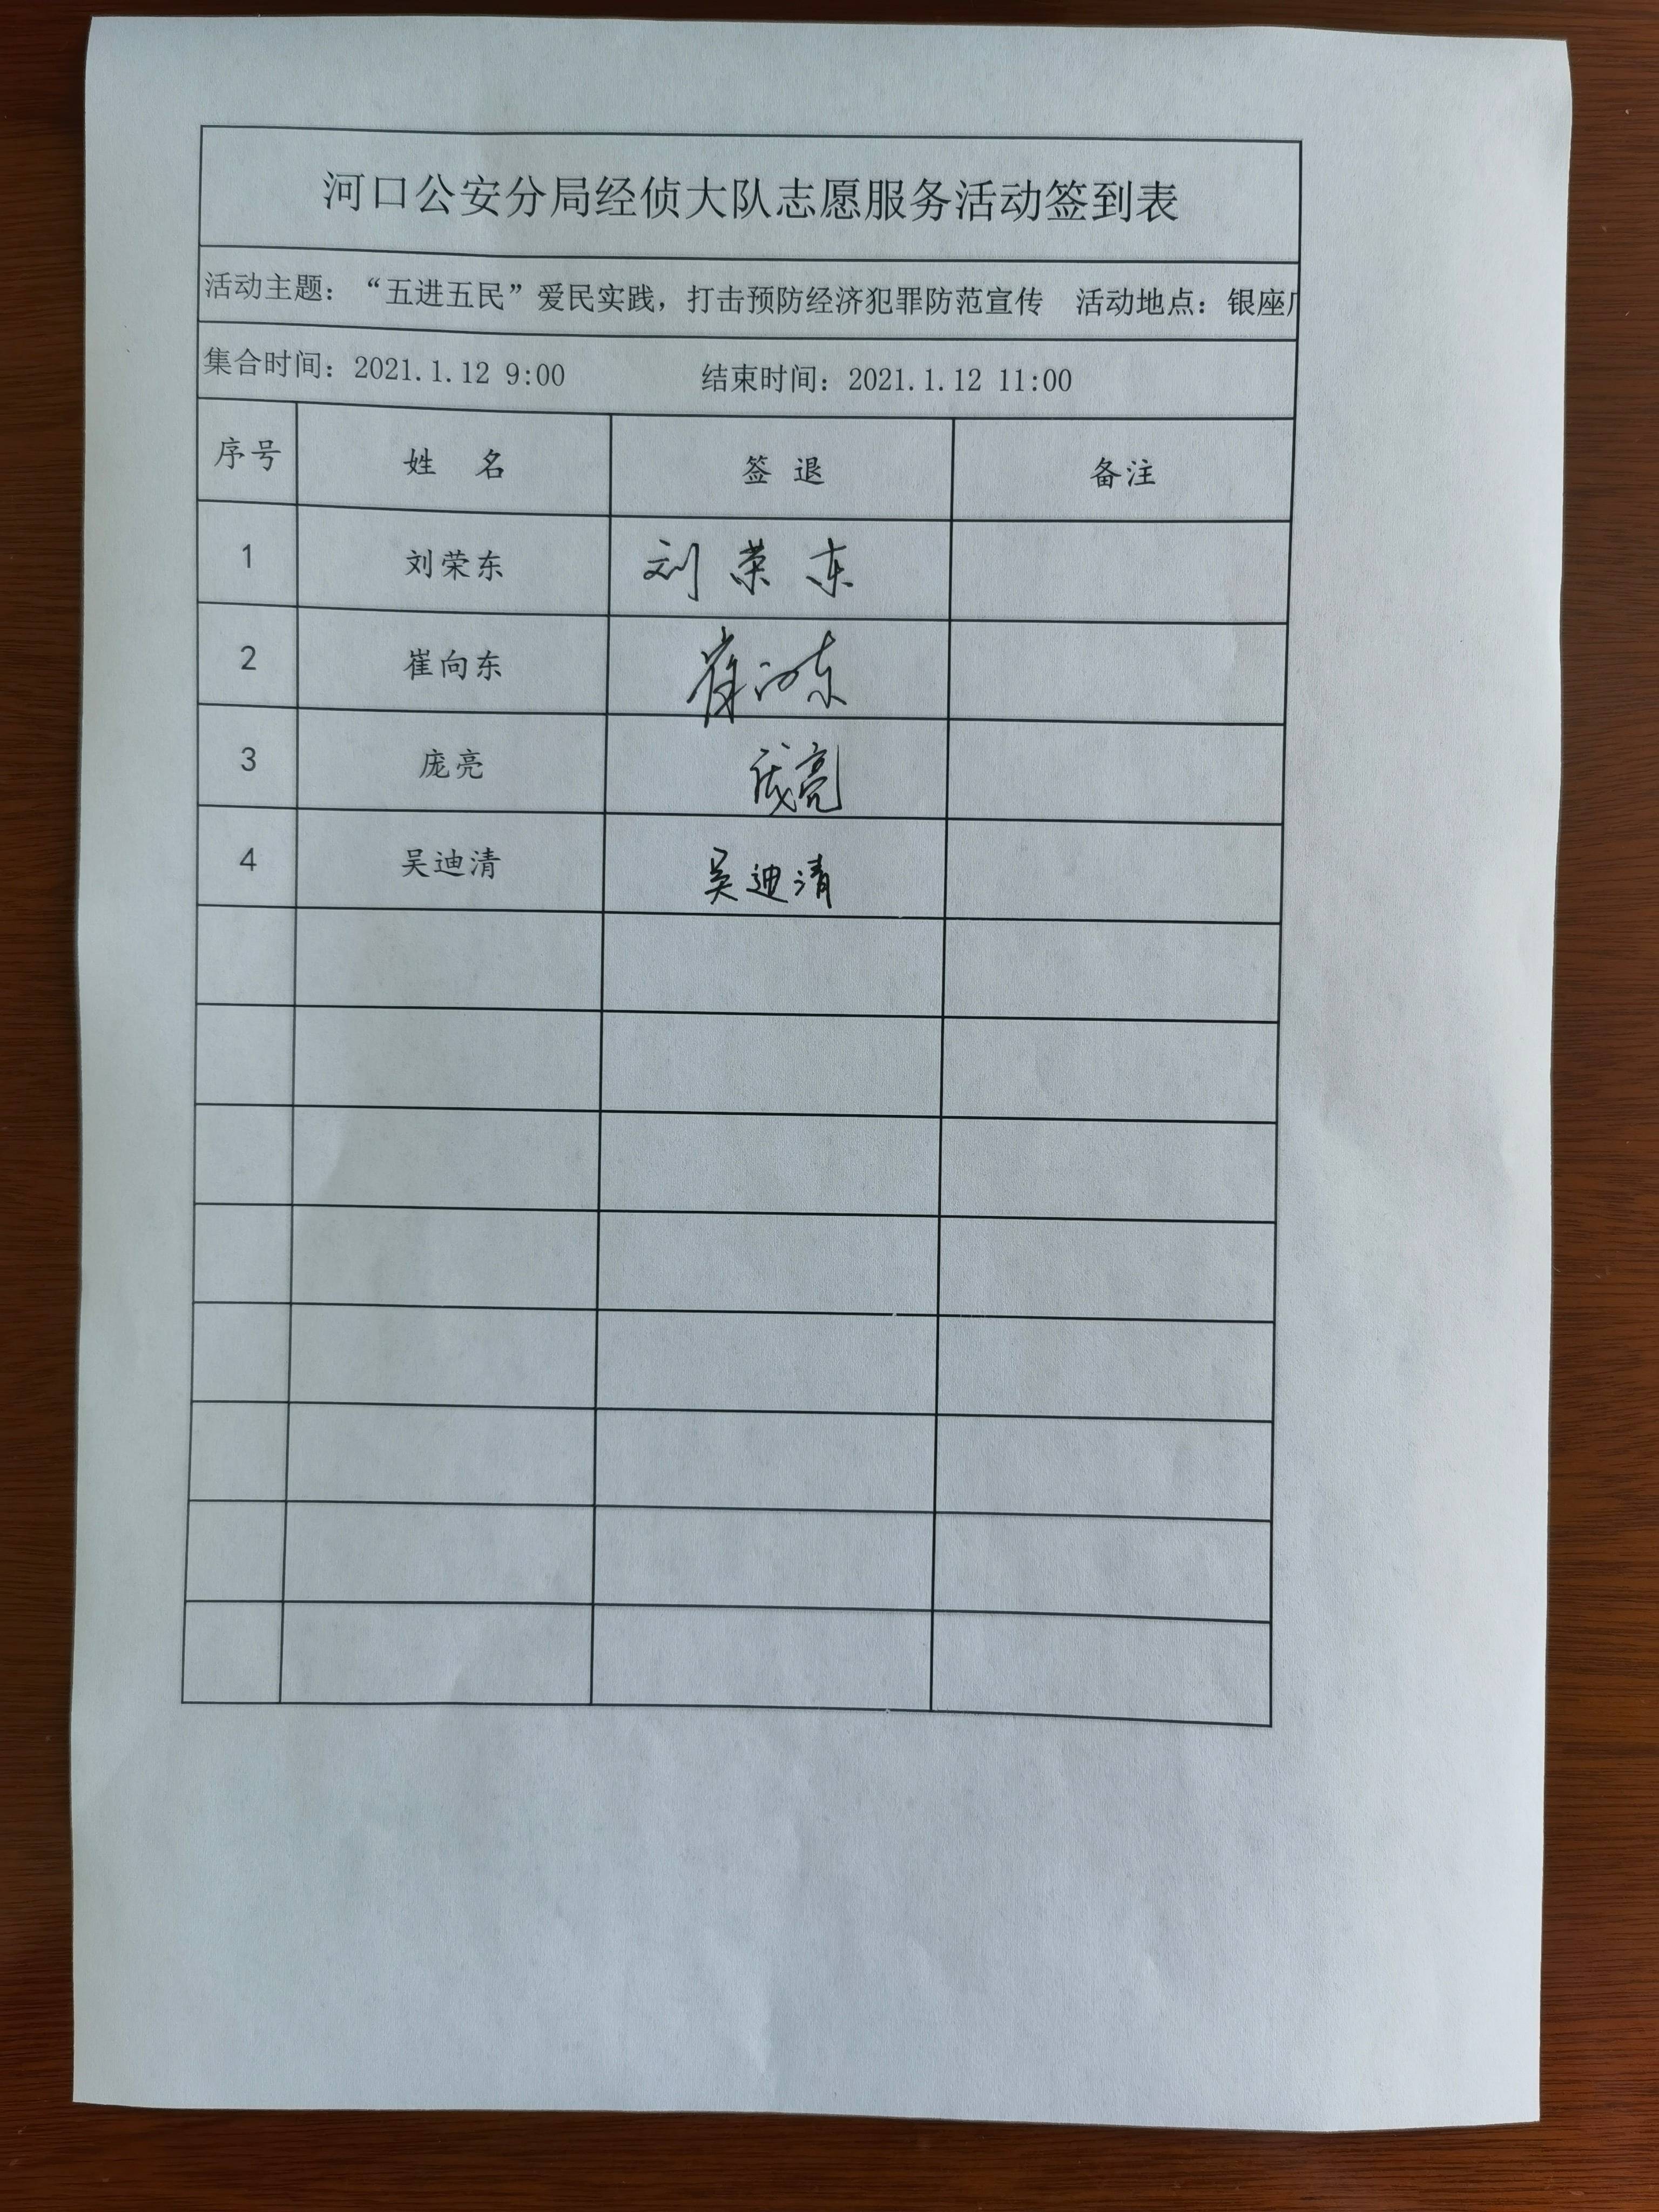 河口公安分局经侦大队志愿服务活动签到表
活动主题：“五进五民”爱民实践，打击预防经济犯罪防范宣传 活动地点：银座
集合时间：2021.1.12 9:00 结束时间：2021.1.12 11:00
序号 姓 名 签 退 备注
1 刘荣东 刘荣东
2 崔向东 崔向东
3 庞亮 庞亮
4 吴迪清 吴迪清